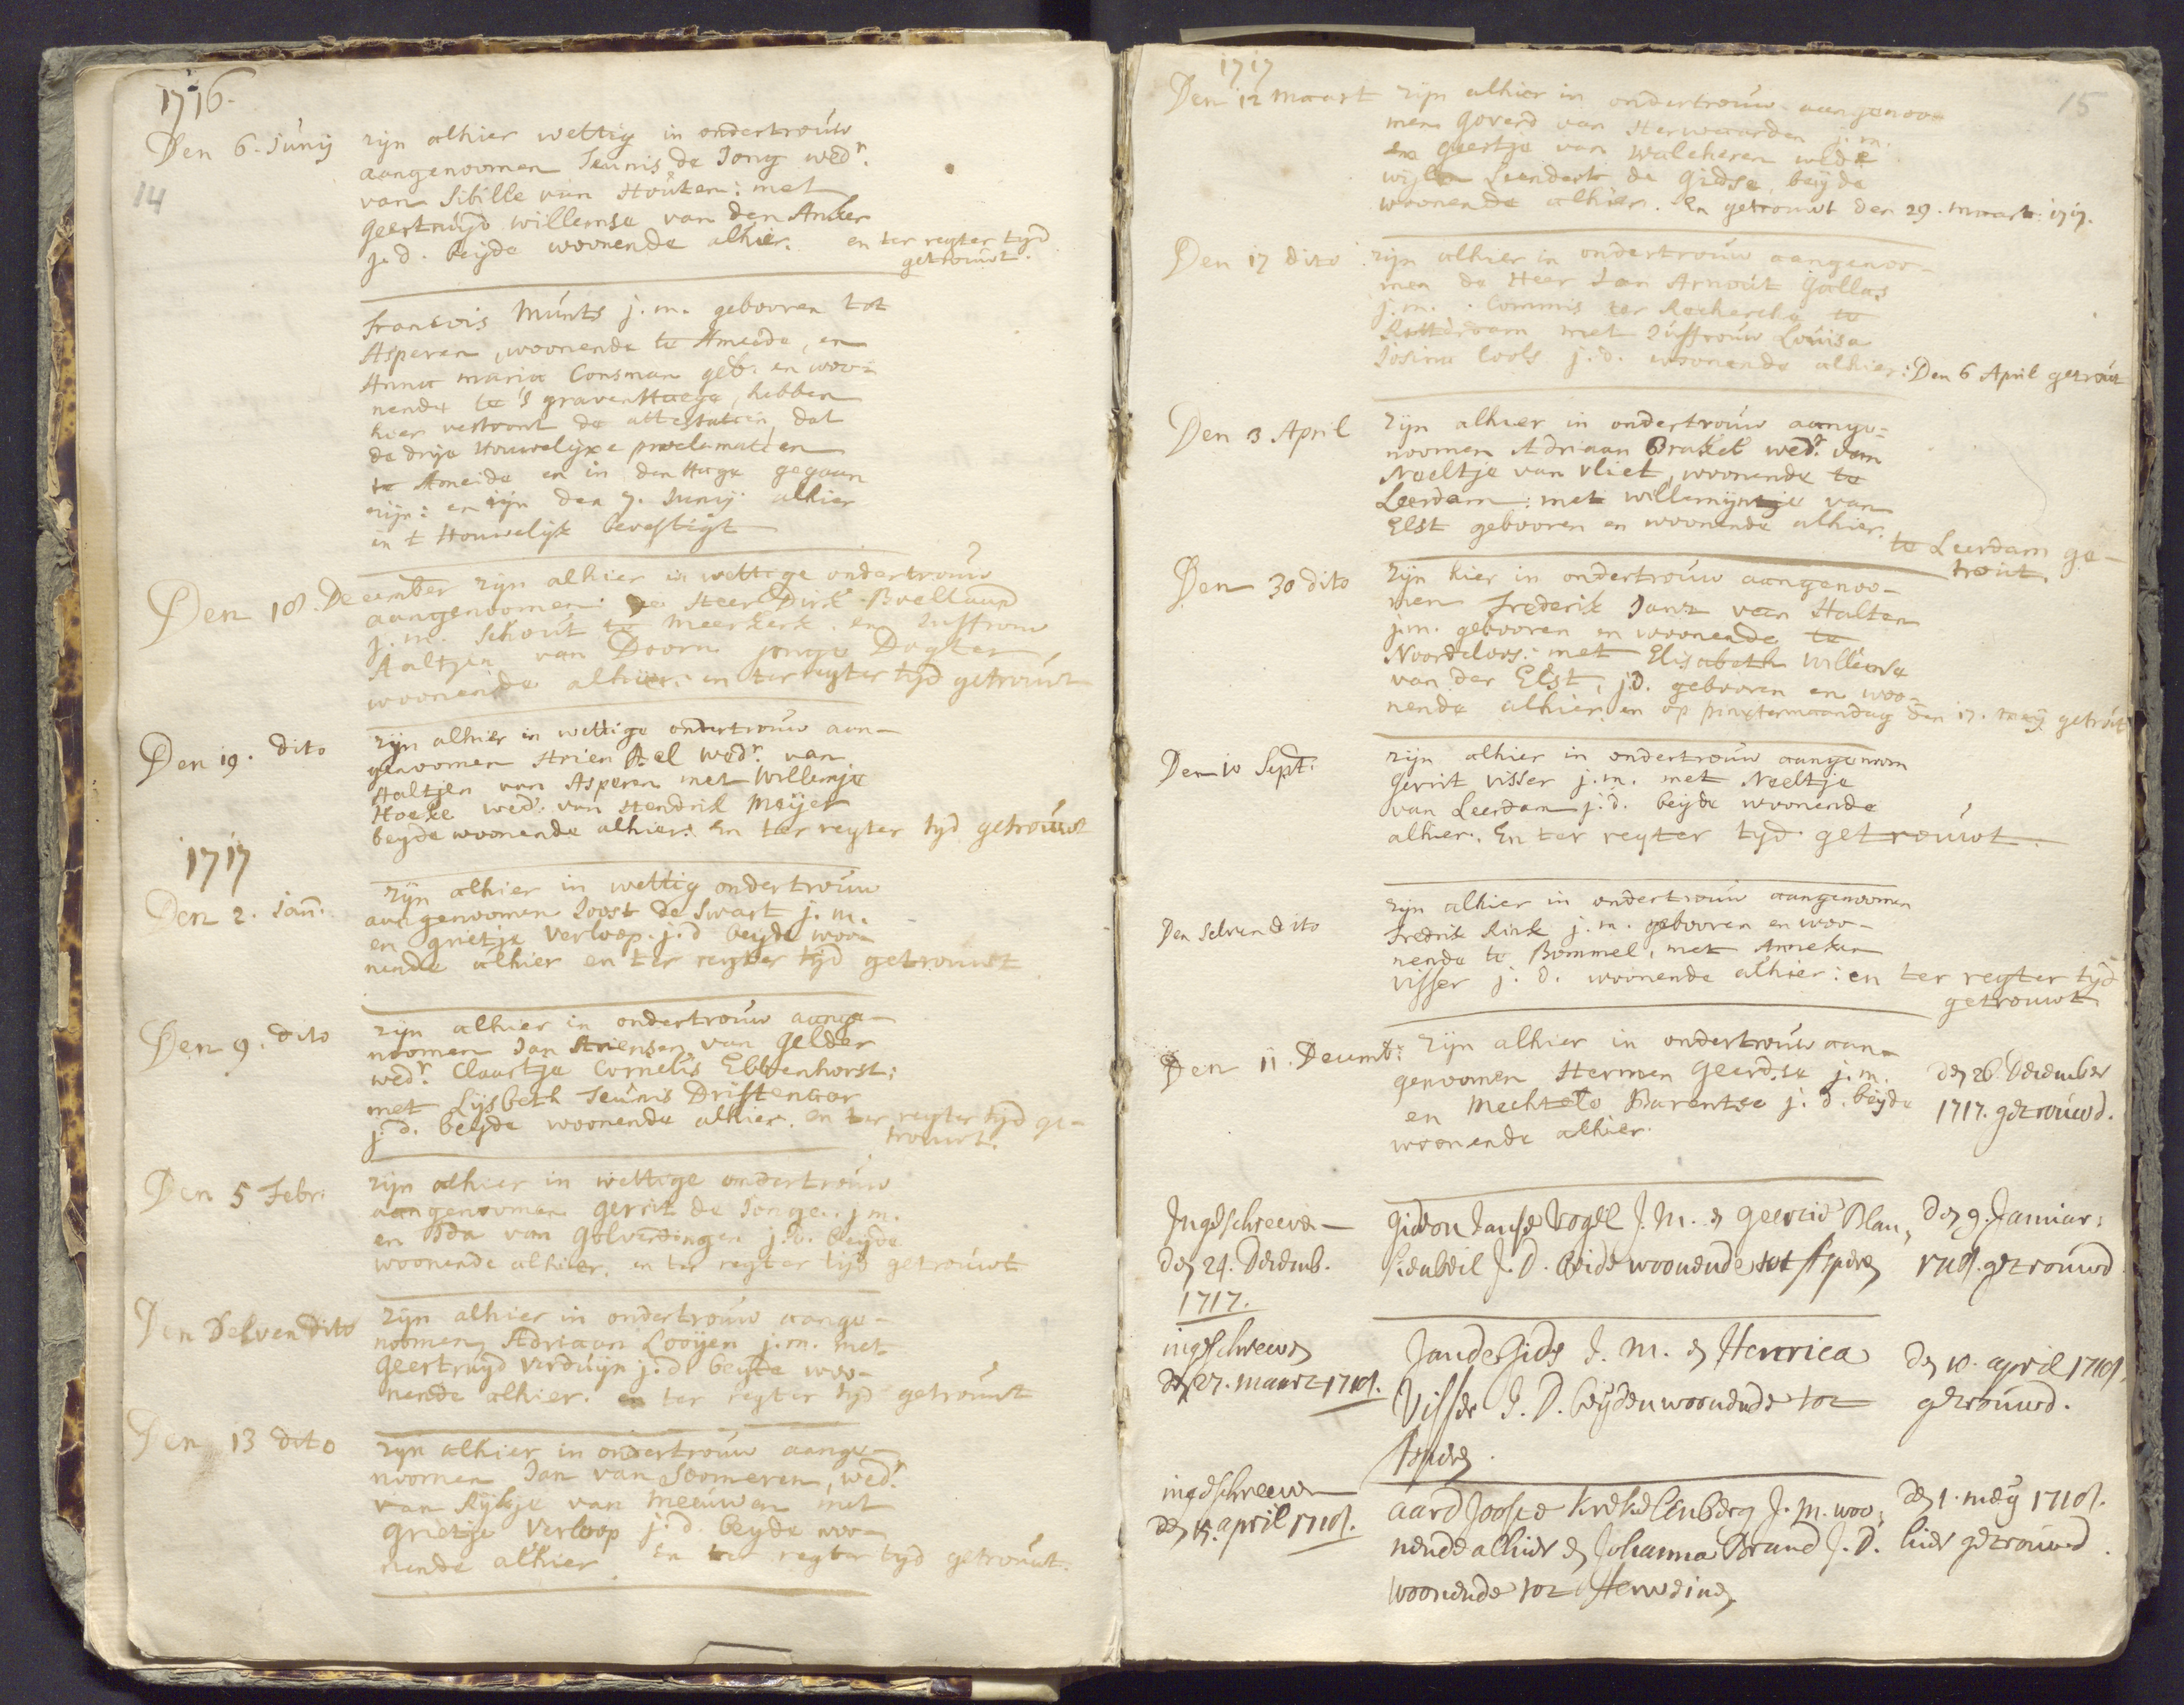 1716.
Den 6. Junij zijn alhier wettig in ondertrouw
14
aangenoomen Teunis de Jong wedr.
van Sibille van Houten: met
Geertruijd willemse van den Anker
j. d. beijde woonende alhier. en ter regter tyd
getrouwt.
Francois Munts j. m. gebooren tot
Asperen, woonende te Ameide, en
Anna maria Consman geb. en woo-
nende te 's gravenHaege, hebben
hier vertoont de attestatien, dat
de drije Houwelijxe proclamatien
te Ameide en in den Hage gegaan
zijn: en zijn den 7. Junij alhier
in t Houwelijk bevestigt
Den 18. December zijn alhier in wettige ondertrouw
aangenoomen de Heer Dirk Boellaard
j. m. Schout te Meerkerk en Juffrouw
Aaltjen van Doorn jonge Dogter,
woonende alhier. en ter regter tijd getrouwt
Den 19. dito zijn alhier in wettige ondertrouw aan-
genoomen Arien Bel wedr. van
Aaltjen van Asperen met Willemje
Hoeke wed. van Hendrik Meijer
beyde woonende alhier. En ter regter tyd getrouwt
1717
Den 2. Jan. zijn alhier in wettig ondertrouw
aangenoomen Joost de Swart j. m.
en grietje Verloop. j. d beyde woo-
nende alhier en ter regter tijd getrouwt
Den 9. dito zijn alhier in ondertrouw aange-
noomen Jan Ariensen van Gelder
wedr. Claartje Cornelis Ebbenhorst;
met Lijsbeth Teunis Driftenaar
j. d. beyde woonende alhier. en ter regter tyd ge-
trouwt.
Den 5 Febr. zijn alhier in wettige ondertrouw
aangenoomen gerrit de Jonge. j m.
en Ida van Golverdingen j. d. beijde
woonende alhier. en ter regter tijd getrouwt
Den Selven dito zijn alhier in ondertrouw aange-
noomen Adriaan Looijen j. m. met
geertruijd Verduijn j: d beyde woo-
nende alhier. en ter regter tijd getrouwt
Den 13 dito zijn alhier in ondertrouw aange-
noomen Jan van Soomeren, wedr.
van Rykje van Meeuwen met
grietje Verloop j: d. beyde woo-
nende alhier En ter regter tyd getrouwt.
15
1717
Den 12 maart zijn alhier in ondertrouw aangenoo-
men Goverd van Herwaarden j. m.
en geertje van Walcheren wede
wijlen Leendert de Gidse, beijde
woonende alhier. En getrouwt den 29. maart 1717.
Den 17 dito zijn alhier in ondertrouw aangenoo-
men de Heer Jan Arnout Gallas
j. m. Commis ter Recherche te
Rotterdam met Juffrouw Louisa
Josina Cools j. d. woonende alhier: Den 6 April getrout
Den 3 April zijn alhier in ondertrouw aange-
noomen Adriaan Brakel wedr. van
Neeltje van vliet, woonende te
Leerdam: met willemijntje van
Elst gebooren en woonende alhier.
te Leerdam ge-
trout.
Den 30 dito zijn hier in ondertrouw aangenoo-
men Frederik Janz van Halten
j. m. gebooren en woonende te
Noordeloos: met Elisabeth willemse
van der Elst, j. d. gebooren en woo-
nende alhier. en op pinxtermaandag den 17. meij getrout
Den 10 Sept: zijn alhier in ondertrouw aangenoom
Gerrit visser j. m. met Neeltje
van Leerdam j. d. beijde woonende
alhier. En ter regter tyd getrouwt.
Den selven dito zijn alhier in ondertrouw aangenoomen
Fredrik Rink j. m. gebooren en woo-
nende te Bommel, met Anneken
visser j. d. woonende alhier: en ter regter tijd
getrouwt
Den 11. Decemb: zijn alhier in ondertrouw aan-
genoomen Hermen Geerdse j. m.
en Mechtelt Barentse j. d. beijde
woonende alhier.
den 26 December
1717. getrouwd.
Ingeschreeven Gideon Janse Vogel J. M. en Geertrid Blan, den 9. Januar:
den 24. Decemb. J. D. beide woonende tot Asperen 1718. getrouwd
1717.
ingeschreeven Jan de Gids J. M. en Henrica den 10. april 1718.
den 27. maart 1718. Visser J. D. beijden woonende tot getrouwd.
Asperen.
ingeschreeven aard Joosse Krekelenberg J. M. woo: den 1. meij 1718.
den 15. april 1718. nende alhier en Johanna Brand J. D. hier getrouwd.
woonende tot Herweinen